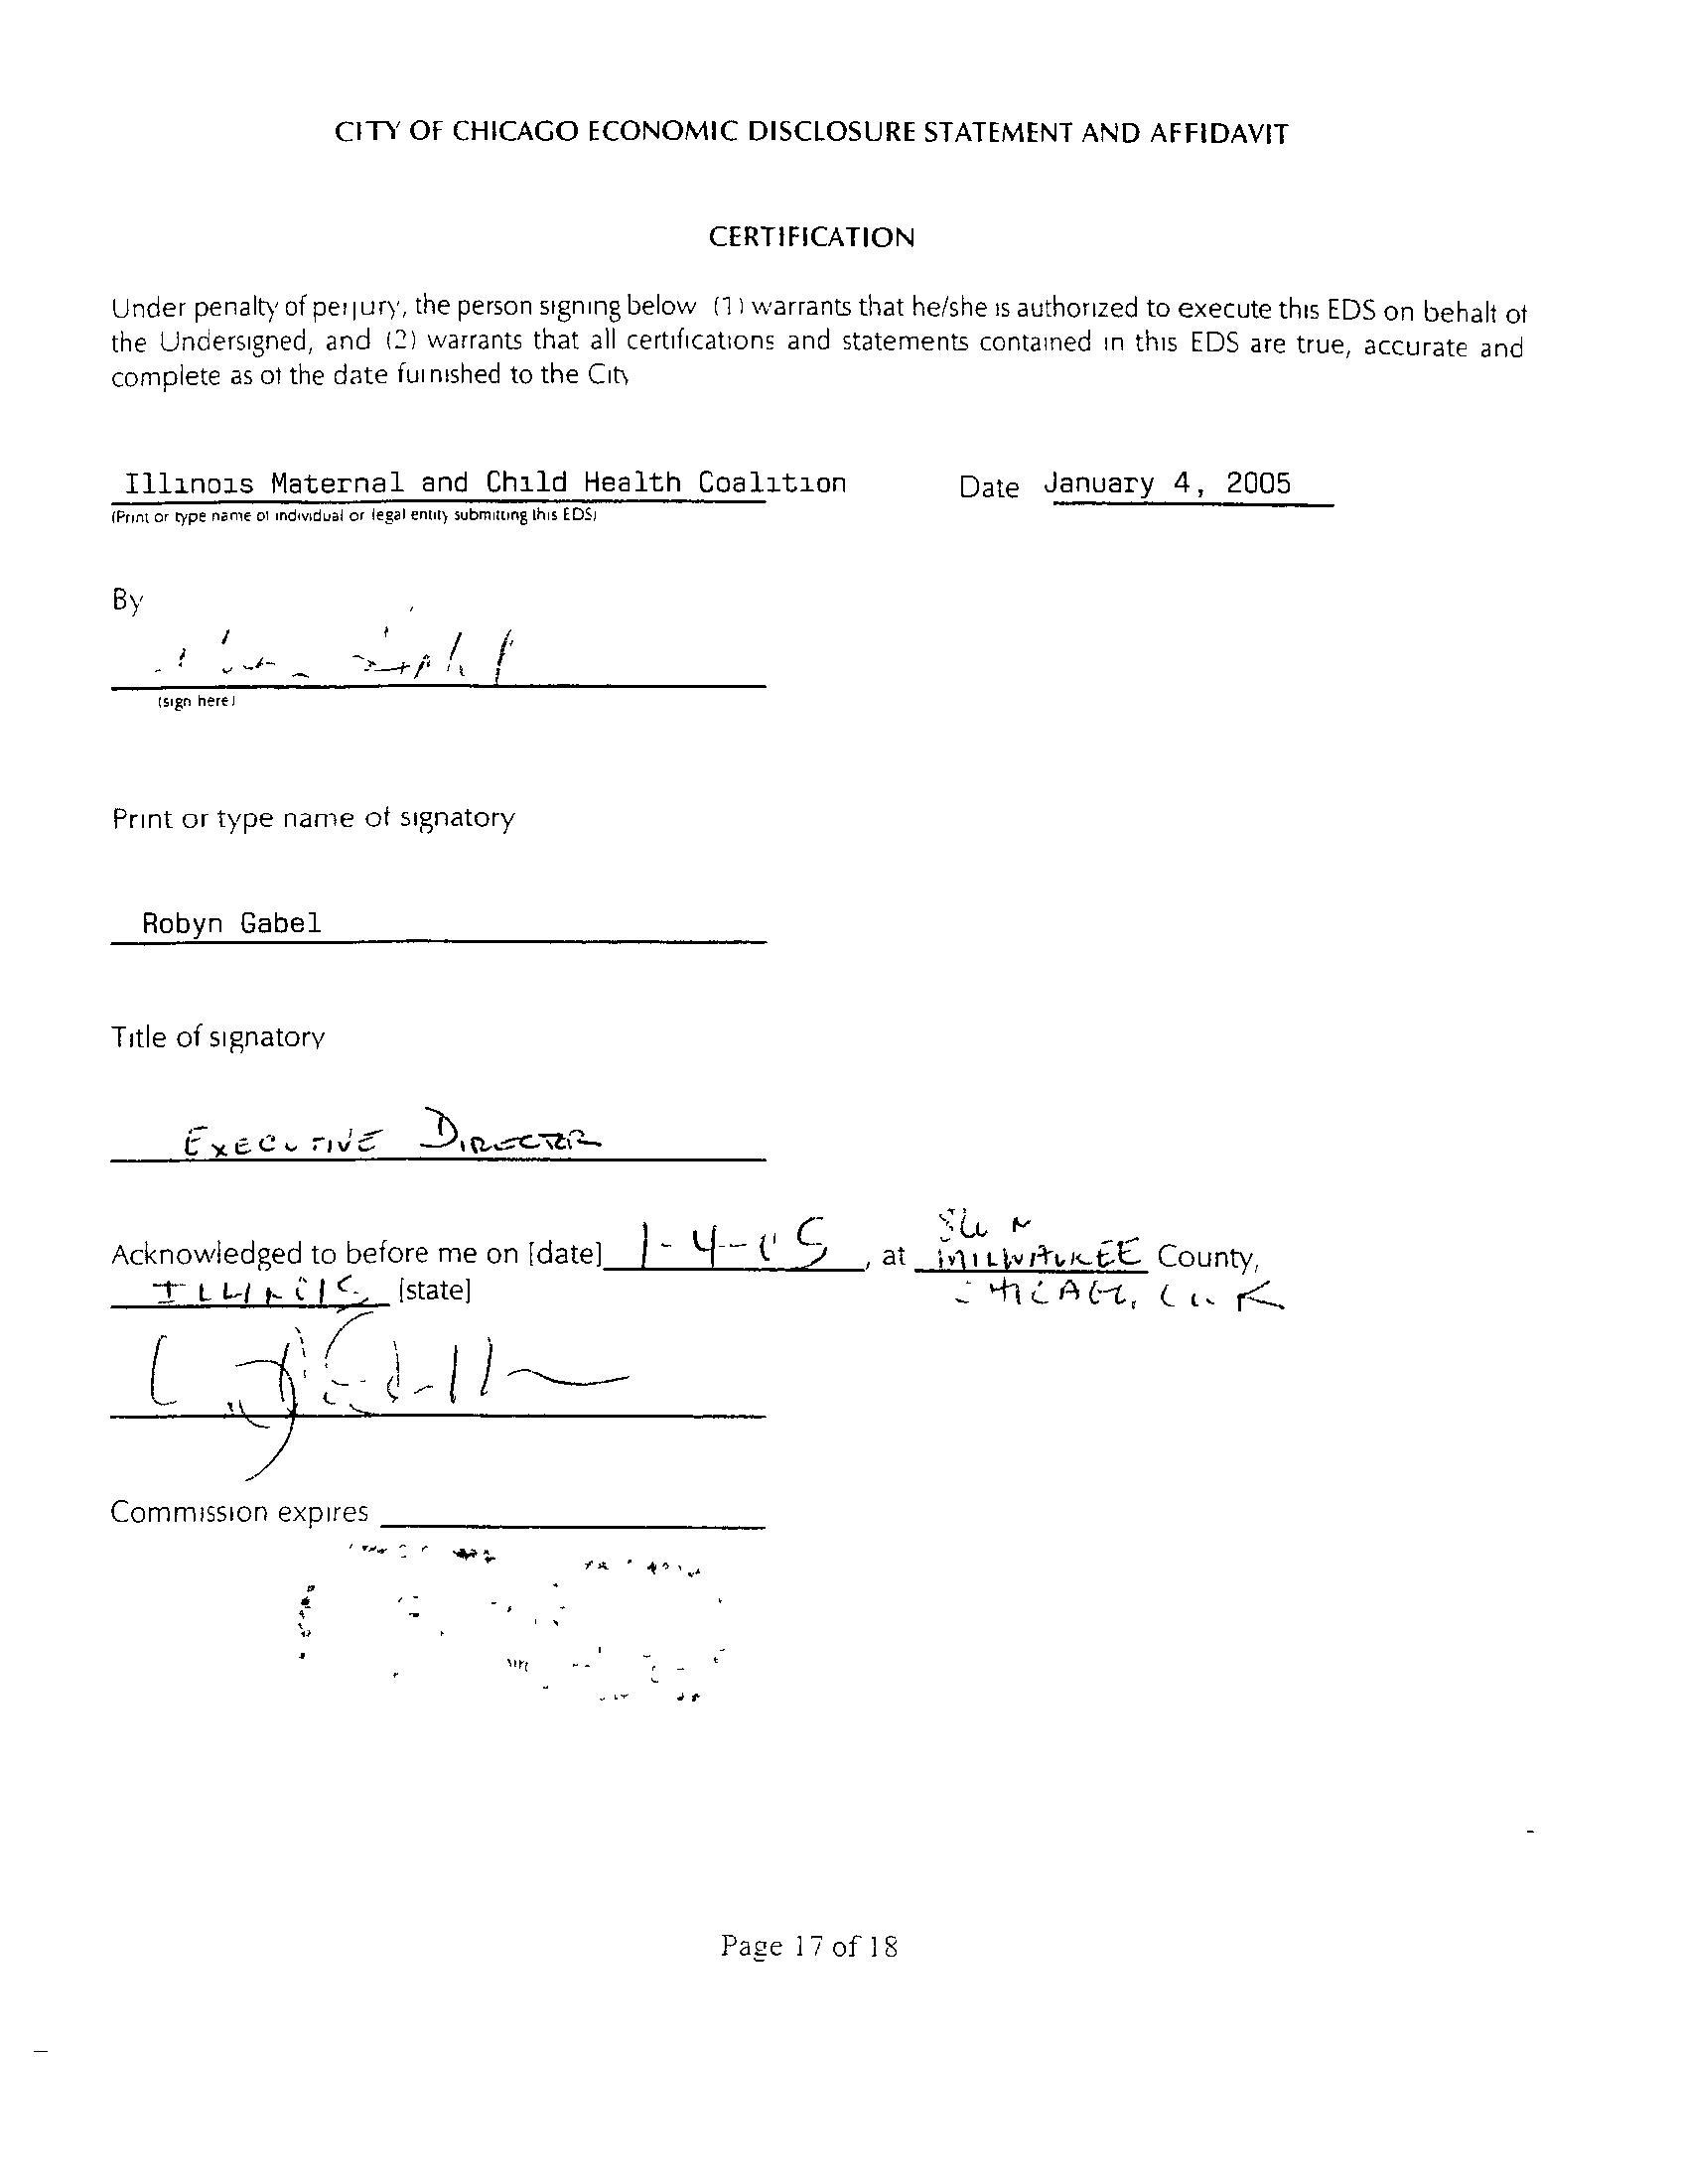 CITY OF CHICAGO ECONOMIC DISCLOSURE STATEMENT AND AFFIDAVIT
CERTIFICATION
Under penalty of perjury, the person signing below (1) warrants that he/she is authorized to execute this EDS on behalf of
the Undersigned, and (2) warrants that all certifications and statements contained in this EDS are true, accurate and
complete as of the date furnished to the City
Illinois Maternal and Child Health Coalition Date January 4, 2005
(Print or type name of individual or legal entity submitting this EDS)
By
(sign here)
Print or type name of signatory
Robyn Gabel
Title of signatory
EXECUTIVE DIRECTOR
Acknowledged to before me on [date] 1-4-05, at MILWAUKEE County,
ILLINOIS [state] CHICAGO, COOK
Commission expires
Page 17 of 18